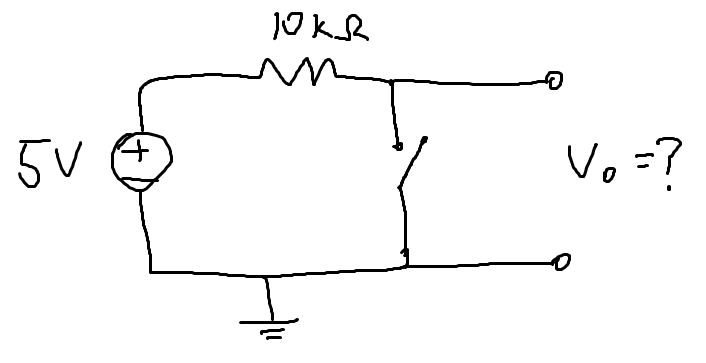 10kΩ
5V
V₀ =?